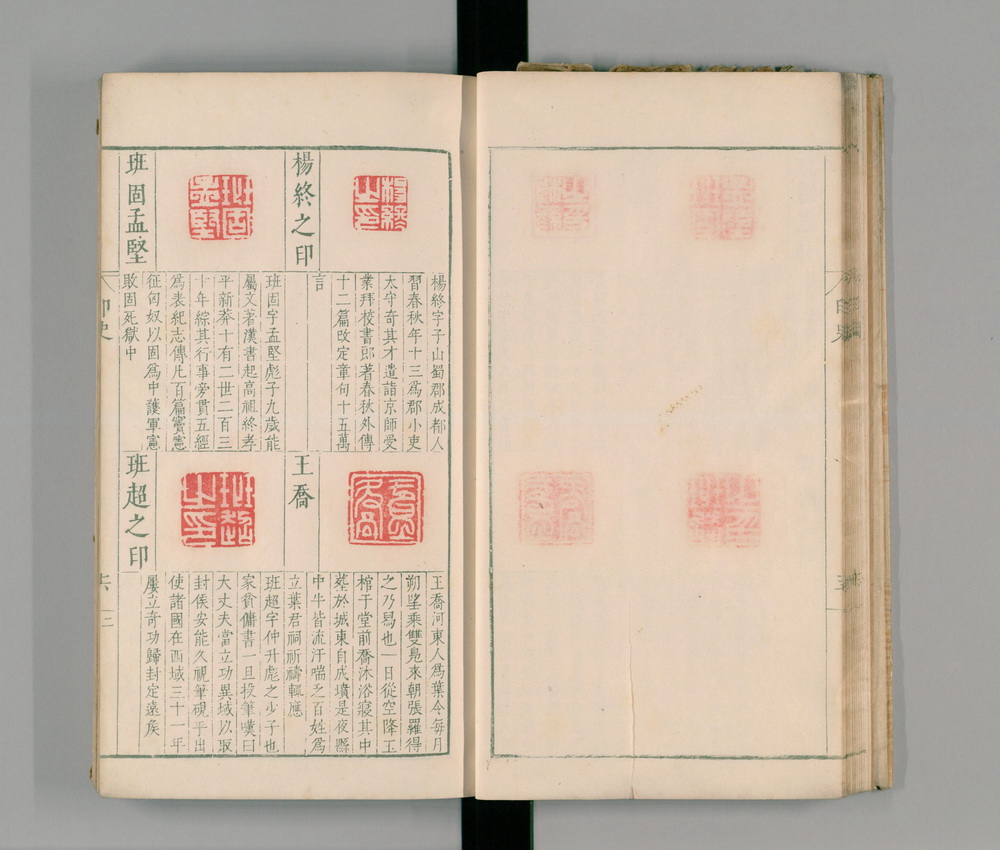 楊終之印
楊終字子山蜀郡成都人
習春秋年十三為郡小吏
太守奇其才遣詣京師受
業拜校書郎著春秋外傳
十二篇改定章句十五萬
言
班固孟堅
班固字孟堅彪子九歲能
屬文著漢書起高祖終孝
平新莽十有二世二百三
十年綜其行事旁貫五經
為表紀志傳凡百篇竇憲
征匈奴以固為中護軍憲
敗固死獄中
王喬
王喬河東人為葉令每月
朔望乘雙鳧來朝張羅得
之乃舄也一日從空降玉
棺于堂前喬沐浴寢其中
塟於城東自成墳是夜縣
中牛皆流汗喘乏百姓為
立葉君祠祈禱輒應
班超之印
班超字仲升彪之少子也
家貧傭書一旦投筆嘆曰
大丈夫當立功異域以取
封侯安能久視筆硯乎出
使諸國在西域三十一年
屢立奇功歸封定遠侯
印史